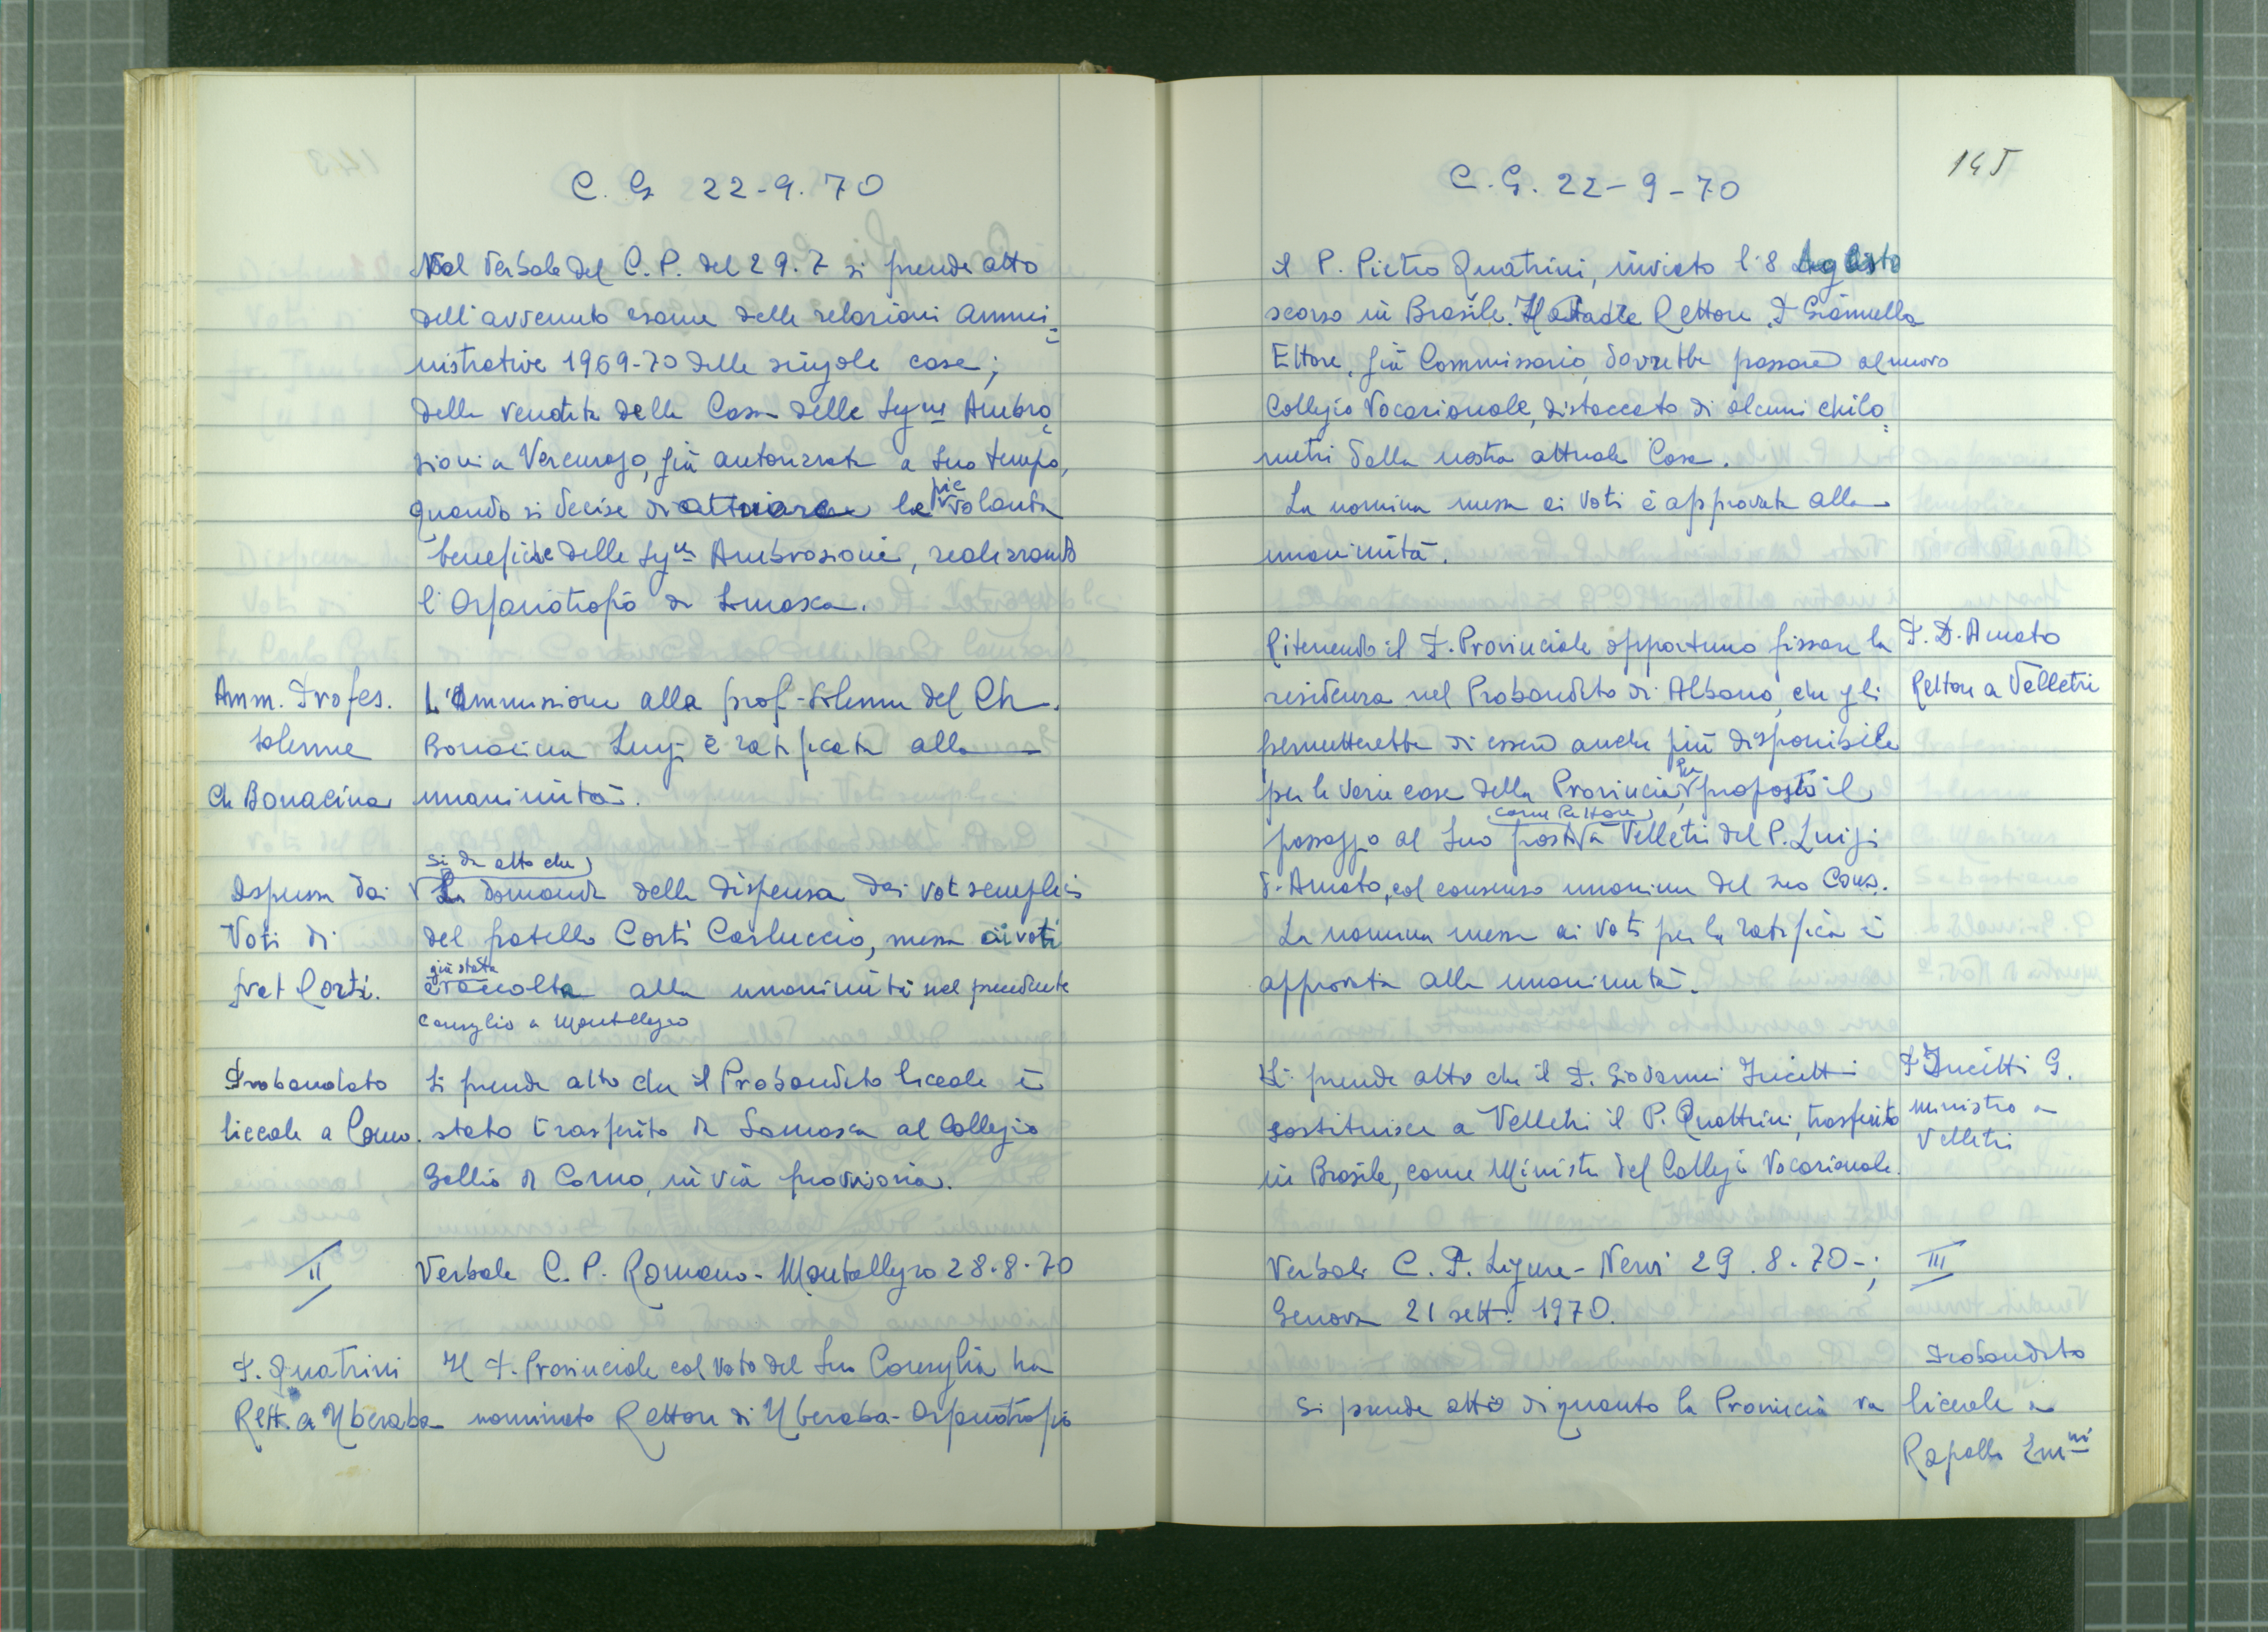 C. G. 22-9.70
Nel Verbale del C.P. del 29.7 si prende atto
dell'avvenuto esame delle relazioni ammi=
nistrative 1969-70 delle singole case;
della vendita della Casa delle Sig.ne Ambro=
sioni a Vercurago, già autorizzata a suo tempo,
quando si decise di attuare le pie volontà
benefiche delle Sig.ne Ambrosioni, realizzando
l'Orfanotrofio di Somasca.
Amm. Profes.
solenne
Ch Bonacina
L'Ammissione alla prof. solenne del Ch.
Bonacina Luigi è ratificata alla
unanimità.
Dispensa dai
Voti di
frat Corti.
si dà atto che
La domanda della dispensa dai voti semplici
del fratello Corti Carluccio, messa ai voti
già stata
è raccolta alla unanimità nel precedente
Consiglio a Montallegro
Probandato
liceale a Como.
Si prende atto che il Probandato liceale è
stato trasferito da Somasca al Collegio
Gallio di Como, in via provvisoria.
II
Verbale C. P. Romano - Montallegro 28.8.70
P. Quatrini
Rett. a Uberaba
Il P. Provinciale col voto del Suo Consiglio ha
nominato Rettore di Uberaba - Orfanotrofio
C. G. 22-9-70
145
il P. Pietro Quatrini, inviato l'8 Agosto
scorso in Brasile. Il Padre Rettore P. Giannella
Ettore, già Commissario, dovrebbe passare al nuovo
Collegio Vocazionale, distaccato di alcuni chilo=
metri dalla nostra attuale Casa.
La nomina messa ai voti è approvata alla
unanimità.
Ritenendo il P. Provinciale opportuno fissare la
residenza nel Probandato di Albano, che gli
permetterebbe di essere anche più disponibile
per le varie case della Provincia, ha proposto il
come Rettore
passaggio al Suo posto a Velletri del P. Luigi
d'Amato, col consenso unanime del suo Cons.
La nomina messa ai voti per la ratifica è
approvata alla unanimità.
P. D'Amato
Rettore a Velletri
Si prende atto che il P. Giovanni Zucitti
sostituisce a Velletri il P. Quattrini, trasferito
in Brasile, come Ministro del Collegio Vocazionale.
P Zucitti G.
ministro a
Velletri
Verbali C. P. Ligure - Nervi 29.8.70-;
Genova 21 sett. 1970.
III
Si prende atto di quanto la Provincia va
Probandato
liceale a
Rapallo Em.ni